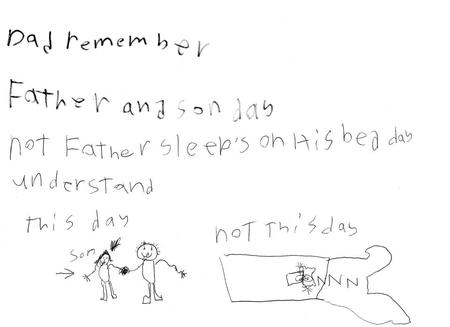 Dad remember
Father and son day
not Father sleep's on His bed day
understand
this day
not This day
Som
NNN